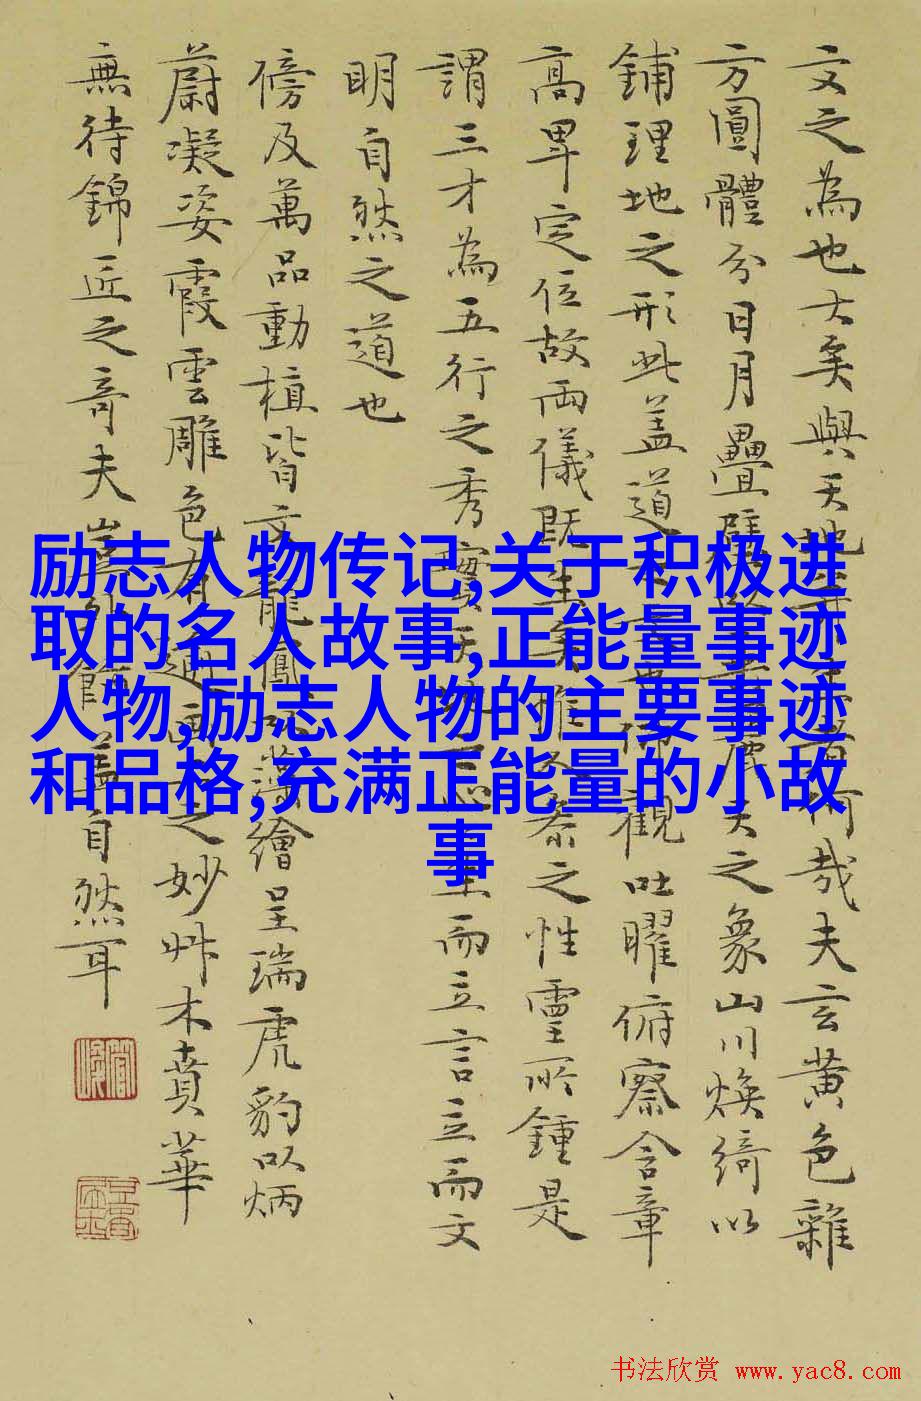 文之為也大矣與天地生者何哉夫玄黃色雜
方圓體分日月疊璧麗天之象山川煥綺以
鋪理地之形此盖道仰觀吐曜俯察含章
高卑定位故兩儀既生矣惟人參之性靈所鍾是
謂三才為五行之秀實天地心生而立言立而文
明自然之道也
傍及萬品動植皆文龍鳳以藻繪呈瑞虎豹以炳
蔚凝姿霞雲雕色有之妙艸木賁華
無待錦匠之奇夫豈外飾蓋自然耳
励志人物传记,关于积极进
取的名人故事,正能量事迹
人物,励志人物的主要事迹
和品格,充满正能量的小故
事
书法欣赏 www.yac8.com